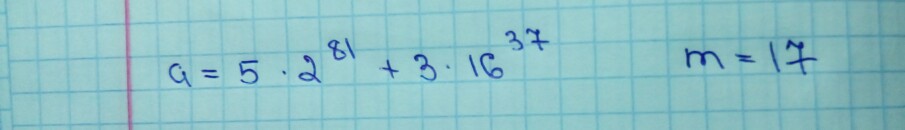 a = 5 · 2^81 + 3 · 16^37 m = 17